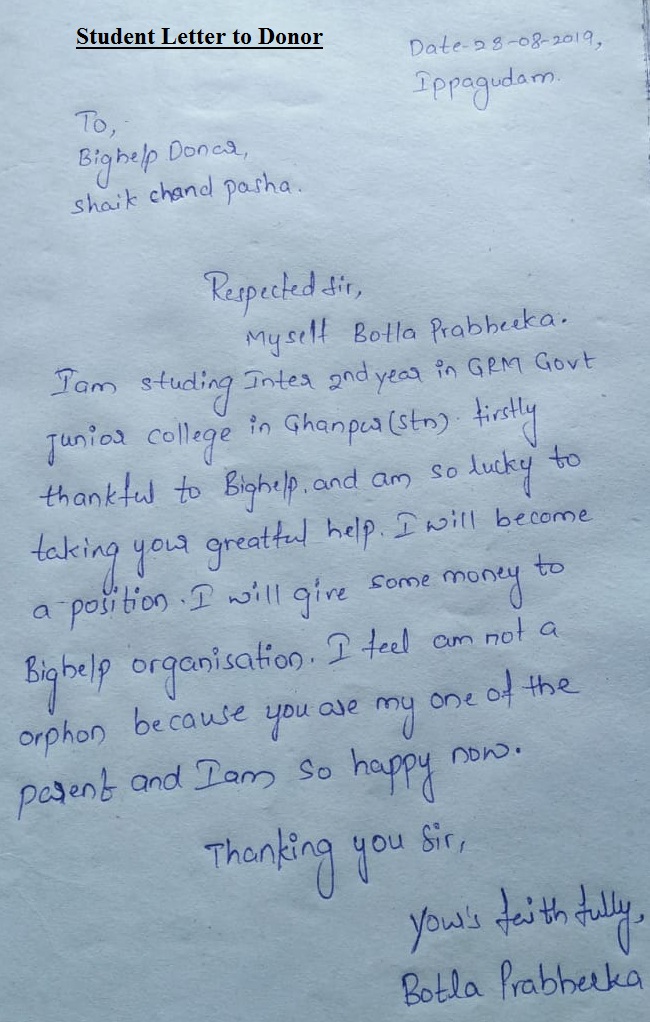 Student Letter to Donor
Date-28-08-2019,
Ippagudam.
To,
Bighelp Donar,
shaik chand pasha.
Respected sir,
Myself Botla Prabheeka.
I am studing Inter 2nd year in GRM Govt
junior college in Ghanpur(stn). firstly
thankful to Bighelp. and am so lucky to
taking your greatful help. I will become
a position. I will give some money to
Bighelp organisation. I feel am not a
orphon because you are my one of the
parent and I am so happy now.
Thanking you Sir,
your's faithfully,
Botla Prabheeka